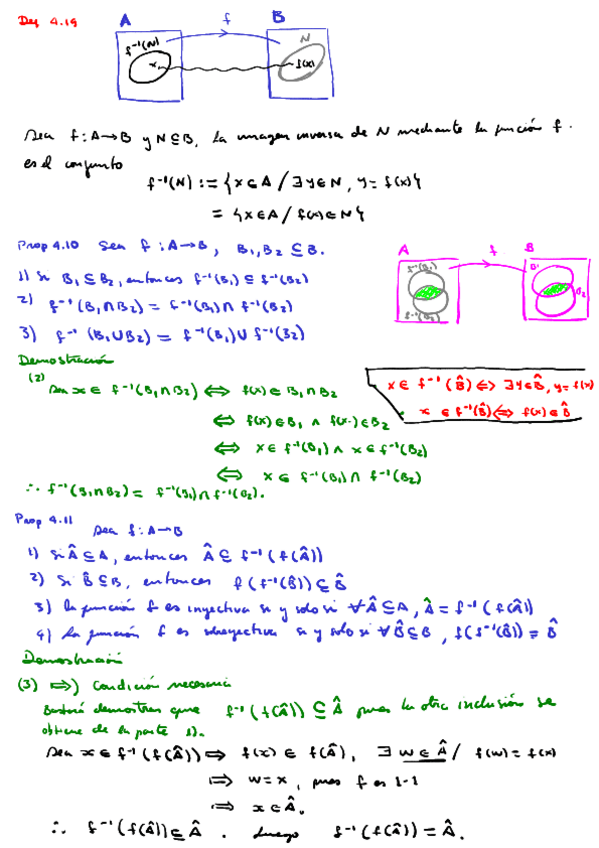 Def 4.19
A f B
f⁻¹(N) N
x f(x)
Sea f: A→B y N⊆B, la imagen inversa de N mediante la función f.
es el conjunto
f⁻¹(N) := {x∈A / ∃ y∈N, y = f(x)}
= {x∈A / f(x)∈N}
Prop 4.10 Sea f: A→B, B₁, B₂ ⊆ B.
A f B
f⁻¹(B₁) B₁
B₂
f⁻¹(B₂)
1) Si B₁ ⊆ B₂, entonces f⁻¹(B₁) ⊆ f⁻¹(B₂)
2) f⁻¹(B₁∩B₂) = f⁻¹(B₁) ∩ f⁻¹(B₂)
3) f⁻¹(B₁∪B₂) = f⁻¹(B₁) ∪ f⁻¹(B₂)
Demostración
(2)
Sea x ∈ f⁻¹(B₁∩B₂) ⟺ f(x) ∈ B₁∩B₂
⟺ f(x)∈B₁ ∧ f(x)∈B₂
⟺ x∈ f⁻¹(B₁) ∧ x∈ f⁻¹(B₂)
⟺ x∈ f⁻¹(B₁) ∩ f⁻¹(B₂)
∴ f⁻¹(B₁∩B₂) = f⁻¹(B₁)∩ f⁻¹(B₂).
x∈ f⁻¹(B̂) ⟺ ∃ y∈B̂, y = f(x)
x ∈ f⁻¹(B̂) ⟺ f(x) ∈ B̂
Prop 4.11
Sea f: A→B
1) Si Â⊆A, entonces  ⊆ f⁻¹(f(Â))
2) Si B̂⊆B, entonces f(f⁻¹(B̂)) ⊆ B̂
3) la función f es inyectiva si y solo si ∀Â⊆A,  = f⁻¹(f(Â))
4) la función f es sobreyectiva si y solo si ∀B̂⊆B, f(f⁻¹(B̂)) = B̂
Demostración
(3) ⟹) Condición necesaria
Bastará demostrar que f⁻¹(f(Â)) ⊆  pues la otra inclusión se
obtiene de la parte 1).
Sea x ∈ f⁻¹(f(Â)) ⟹ f(x) ∈ f(Â), ∃ w∈ / f(w) = f(x)
⟹ w = x, pues f es 1-1
⟹ x∈Â.
∴ f⁻¹(f(Â)) ⊆ Â. Luego f⁻¹(f(Â)) = Â.